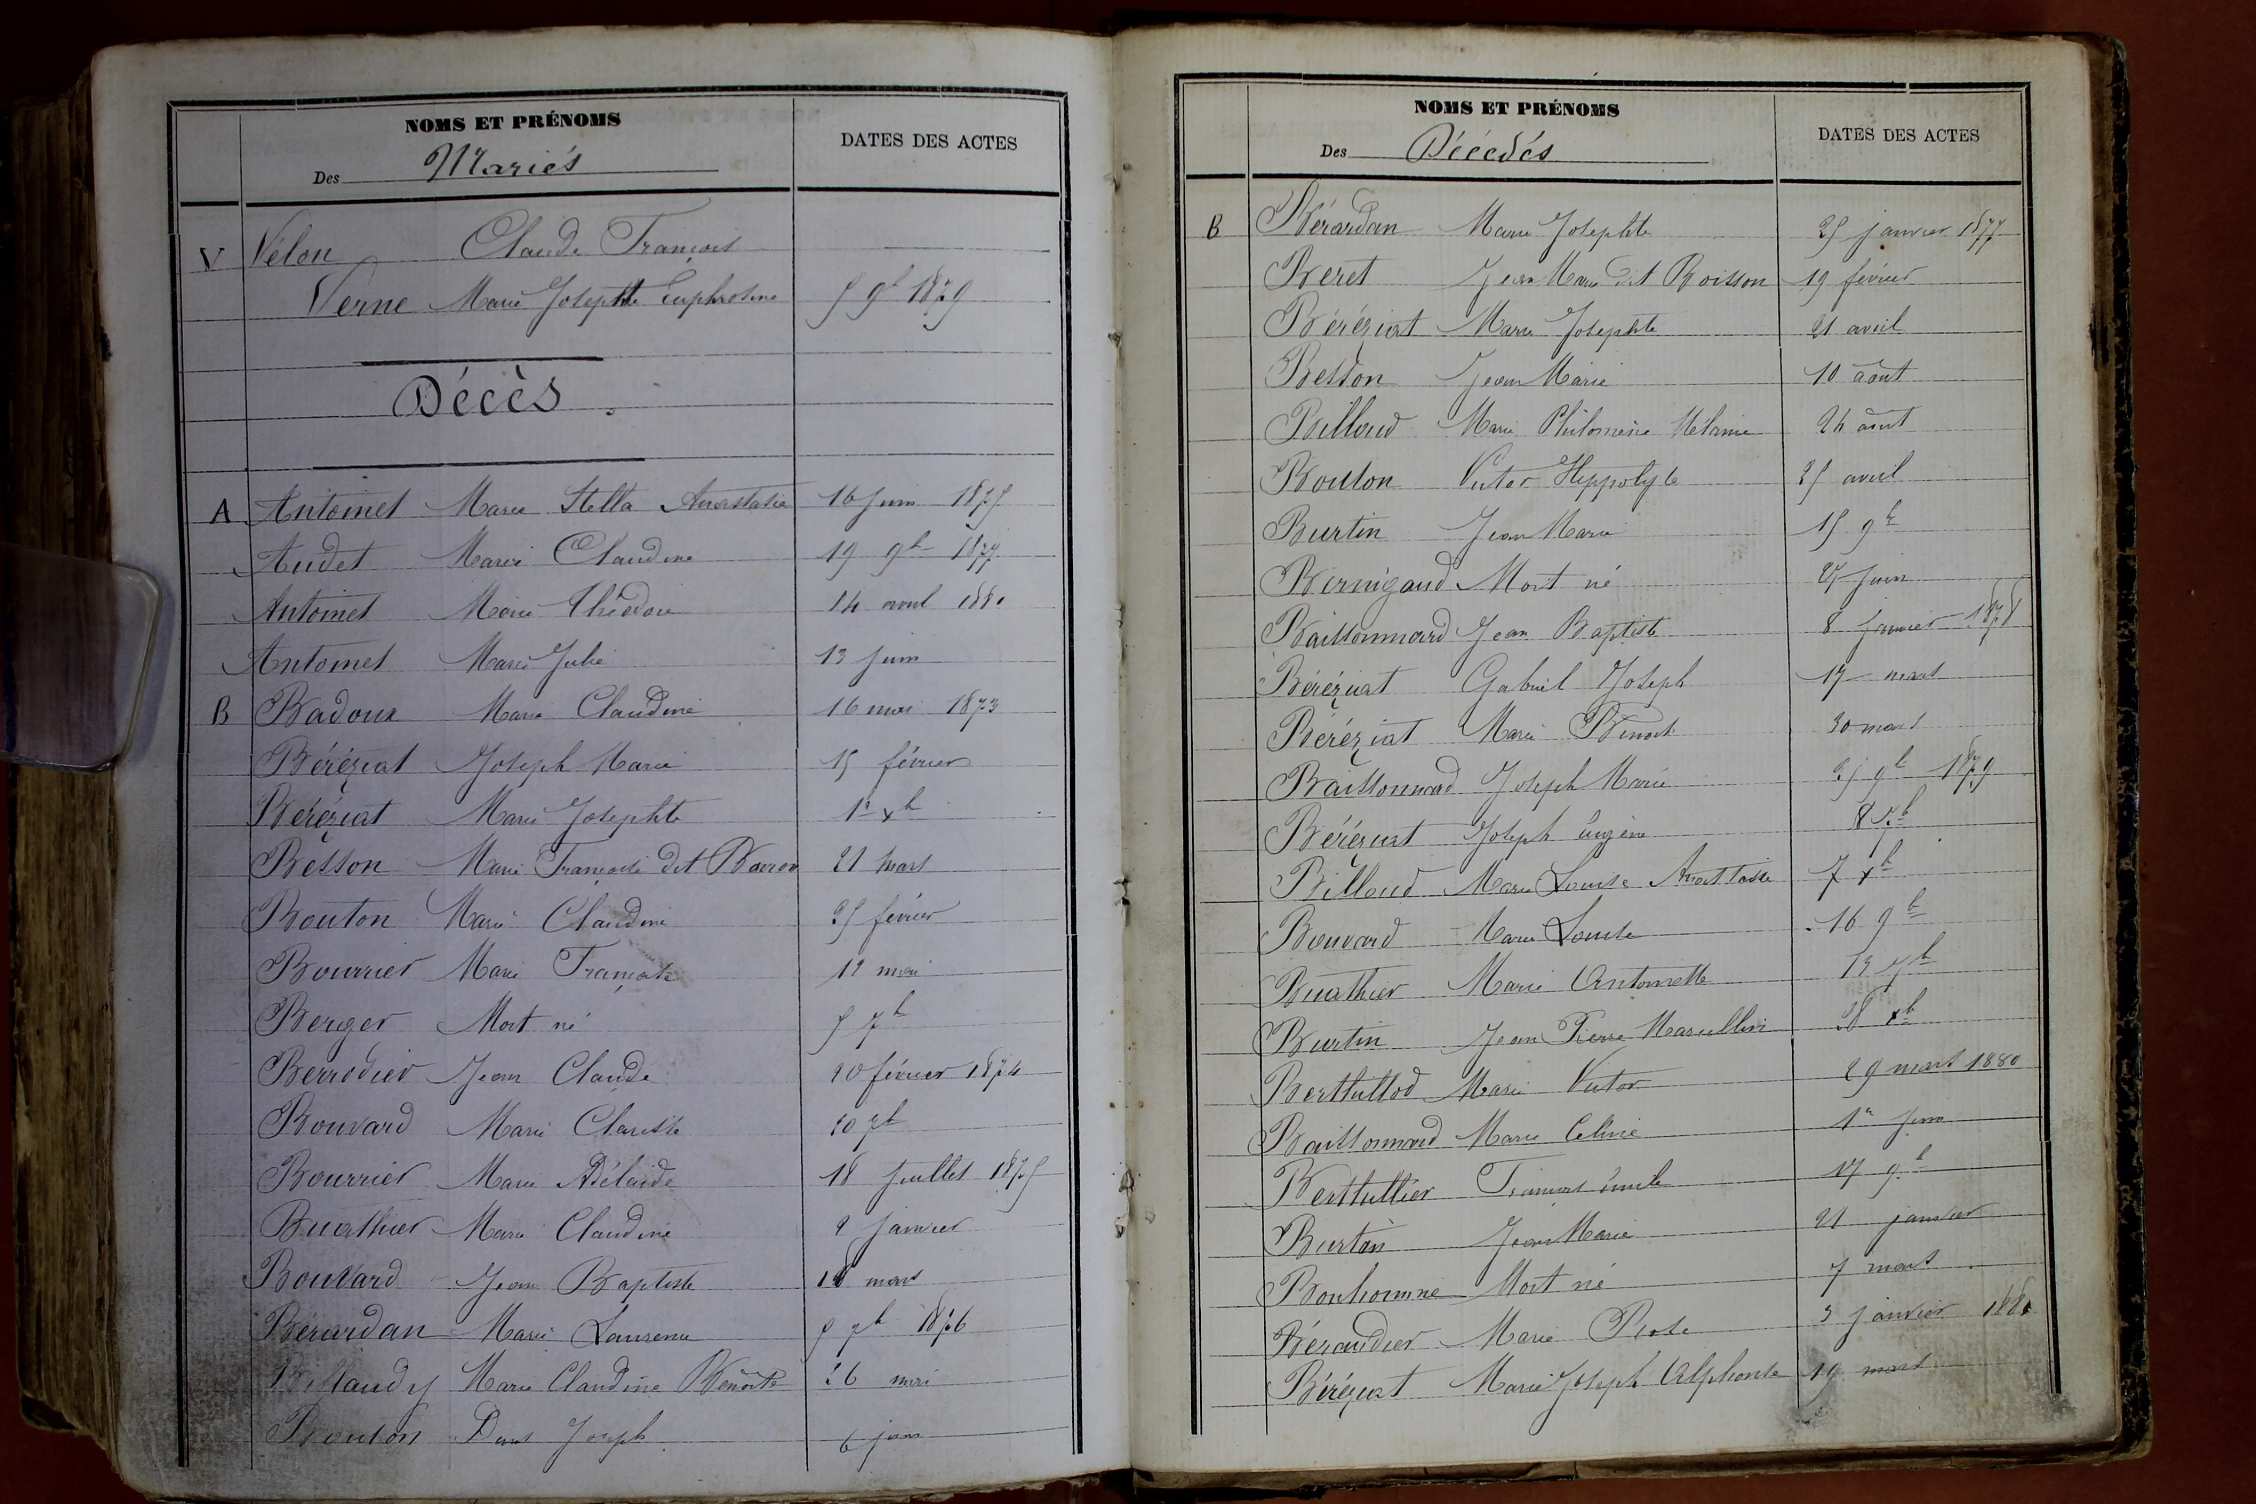 NOMS ET PRÉNOMS
Des Mariés
DATES DES ACTES
V Vélon Claude François
Verne Marie Josephte Euphrosine 5 9b 1879
Décès.
A Antoinet Marie Stella Anastasie 16 juin 1875
Audet Marie Claudine 19 9b 1877
Antoinet Marie Théodore 14 avril 1880
Antoinet Marie Julie 13 juin
B Badoux Marie Claudine 16 mai 1873
Béréziat Joseph Marie 15 février
Béréziat Marie Josephte 1r xb
Besson Marie Françoise dit 21 mars
Bouton Marie Claudine 25 février
Bourrier Marie Françoise 12 mai
Berger Mort né 5 7b
Berrodier Jean Claude 20 février 1874
Bouvard Marie Clarisse 20 7b
Bourrier Marie Adélaide 18 juillet 1875
Buathier Marie Claudine 2 janvier
Bouvard Jean Baptiste 18 mars
Bérardan Marie Laurence 5 7b 1876
Billaudy Marie Claudine Benoite 26 mai
Bouton Joseph 6 juin
NOMS ET PRÉNOMS
Des Décédés
DATES DES ACTES
B Bérardan Marie Josephte 25 janvier 1877
Béret Jean Marie dit Boisson 19 février
Béréziat Marie Josephte 21 avril
Besson Jean Marie 10 août
Billoud Marie Philomène Mélanie 24 août
Bouton Victor Hippolyte 25 avril
Burtin Jean Marie 15 9b
Bernigaud Mort né 25 juin
Baissonnard Jean Baptiste 8 janvier 1878
Béréziat Gabriel Joseph 17 mars
Béréziat Marie Benoit 30 mars
Baissonnard Joseph Marie 25 9b 1879
Béréziat Joseph Eugène 8 xb
Billoud Marie Louise Anastasie 7 xb
Bouvard Marie Louise 16 9b
Buathier Marie Antoinette 13 7b
Burtin Jean Pierre Marcellin 28 xb
Berthillod Marie Victor 29 mars 1880
Baissonnard Marie Celine 1r juin
Berthillier François Emile 17 9b
Burtin Jean Marie 21 janvier
Bonhomme Mort né 7 mars
Béraudier Marie 3 janvier 1880
Béréziat Marie Joseph Alphonse 19 mars